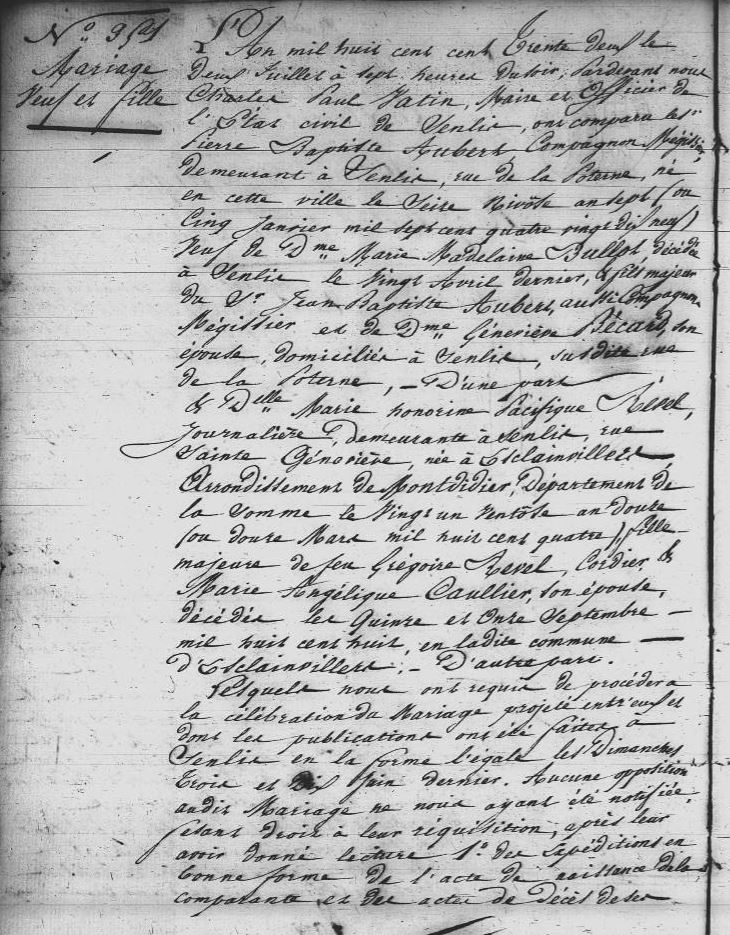 Mariage
Veuf et fille
L'An mil huit cent cent trente deux le
Deux Juillet à sept heures du soir, Pardevant nous
Charles Paul Vatin, Maire et Officier de
l'Etat civil de Senlis, ont comparu les Sr
Pierre Baptiste Aubert, Compagnon Mégissier,
demeurant à Senlis, rue de la Poterne, né
en cette ville le Seize Nivôse an sept (ou
Cinq Janvier mil sept cent quatre vingt dix neuf)
Veuf de Dme Marie Madelaine Bullot, décédée
à Senlis le Vingt Avril dernier, & fils majeur
du Sr Jean Baptiste Aubert, aussi Compagnon
Mégissier et de Dme Géneviève Bécard, son
épouse, domiciliés à Senlis, susdite rue
de la Poterne, – D'une part
& Delle Marie honorine Pacifique Revel,
Journalière, demeurante à Senlis, rue
Sainte Géneviève, née à Esclainvillers
Arrondissement de Montdidier, Département de
la Somme le Vingt un Ventôse an douze
(ou douze Mars mil huit cent quatre), fille
majeure de feu Grégoire Revel, Cordier &
Marie Angélique Caullier, son épouse,
décédés les Quinze et Onze Septembre –
mil huit cent huit, en ladite commune –
d'Esclainvillers, – D'autre part.
Lesquels nous ont requis de procéder a
la célébration du Mariage projeté entr'eux et
dont les publications ont été faites a
Senlis en la forme légale les Dimanches
trois et Dix Juin dernier. Aucune opposition
audit Mariage ne nous ayant été notifiée,
fesant droit à leur réquisition, après leur
avoir donné lecture 1o des Expéditions en
bonne forme de l'acte de naissance de la
comparante et des actes de Décès de ses